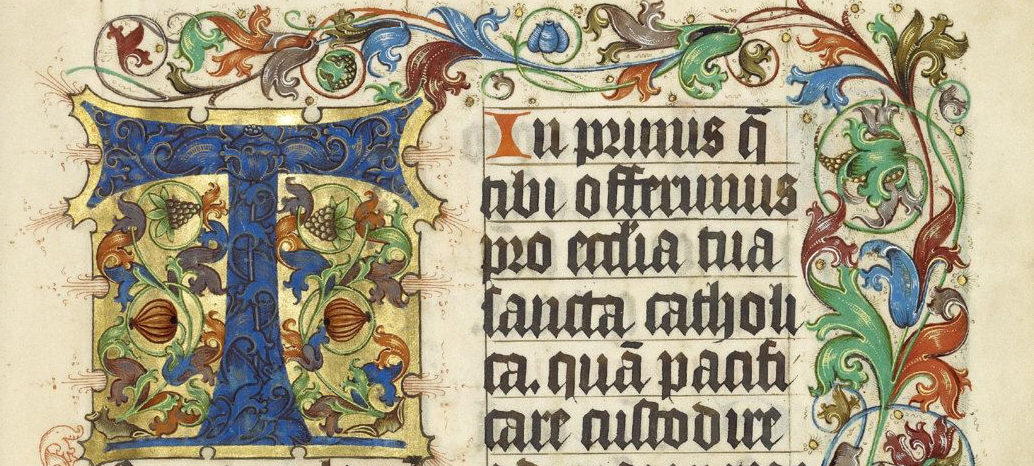 T
In primis q̄
tibi offerimus
pro eccl̄ia tua
sancta catholi
ca. quā pacifi
care custodire